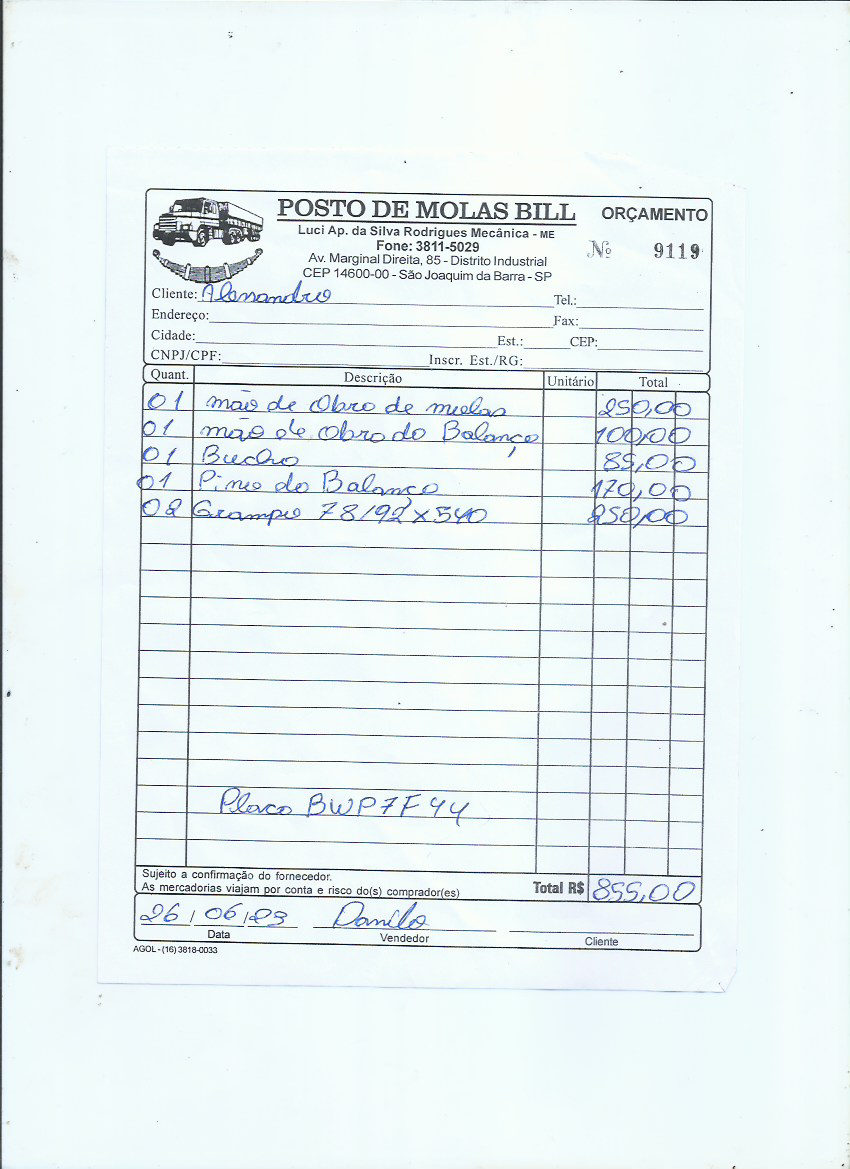 POSTO DE MOLAS BILL
ORÇAMENTO
Luci Ap. da Silva Rodrigues Mecânica - ME
Fone: 3811-5029
Nº 9119
Av. Marginal Direita, 85 - Distrito Industrial
CEP 14600-00 - São Joaquim da Barra - SP
Cliente: Alessandro Tel.:
Endereço: Fax:
Cidade: Est.: CEP:
CNPJ/CPF: Inscr. Est./RG:
Quant. Descrição Unitário Total
01 mão de Obra de molas 250,00
01 mão de Obra do Balanço 100,00
01 Bucha 85,00
01 Pino do Balanço 170,00
02 Grampo 78/92 x 540 250,00
Placa BWP7F44
Sujeito a confirmação do fornecedor.
As mercadorias viajam por conta e risco do(s) comprador(es)
Total R$ 855,00
26/06/23 Danilo
Data Vendedor Cliente
AGOL - (16) 3818-0033